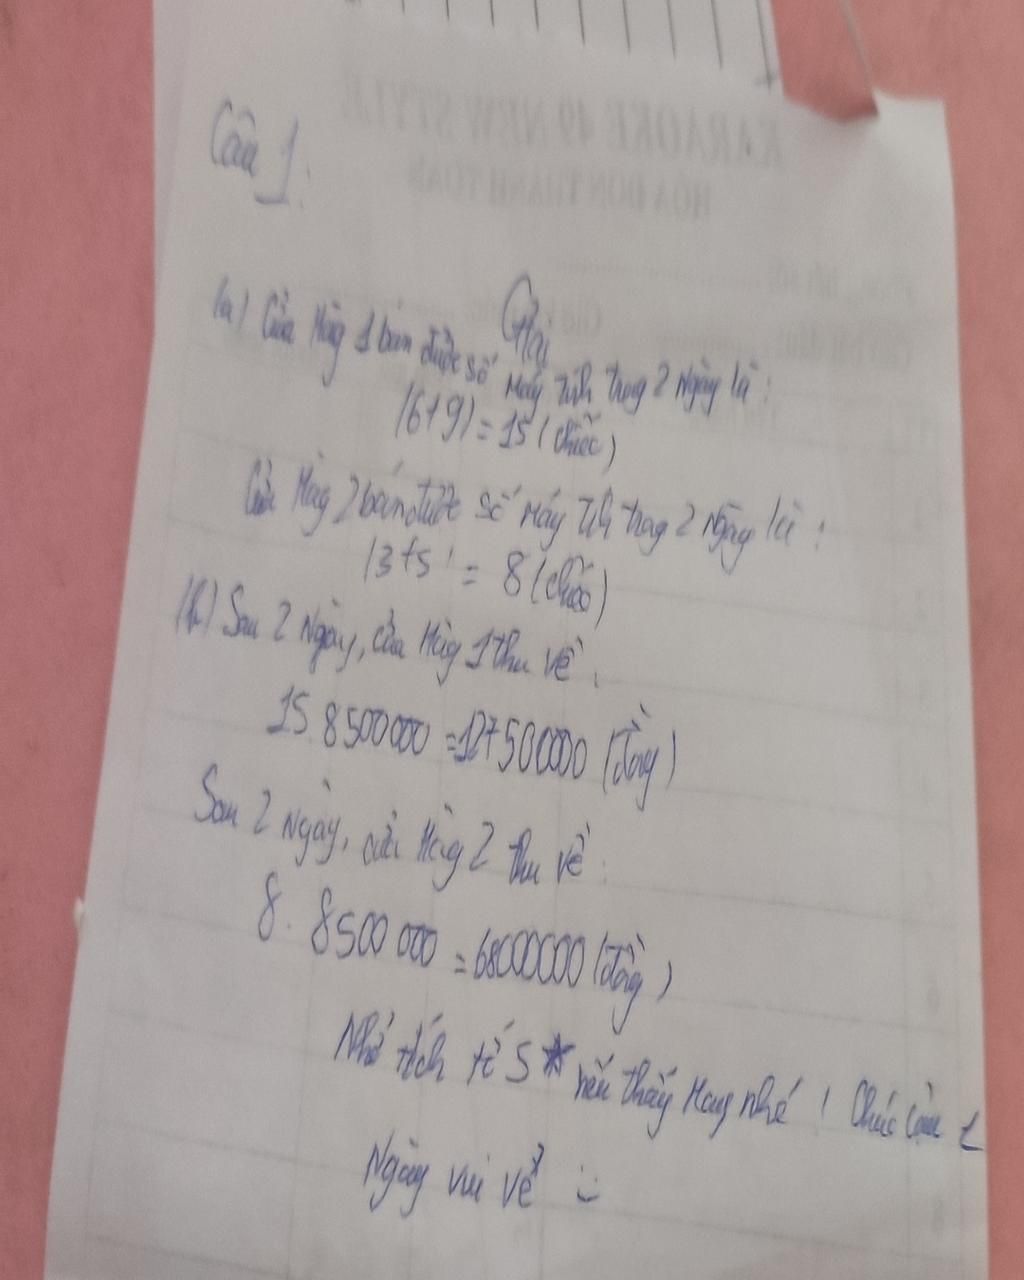 KARAOKE 49 NEW STYLE
HÓA ĐƠN THANH TOÁN
Câu 1:
Giải
(a) Cửa Hàng 1 bán được số máy tính trong 2 Ngày là:
(6+9) = 15 (chiếc)
Cửa Hàng 2 bán được số máy tính trong 2 Ngày là:
3+5 = 8 (chiếc)
(b) Sau 2 Ngày, cửa Hàng 1 thu về:
15.8500000 = 127500000 (đồng)
Sau 2 Ngày, cửa Hàng 2 thu về:
8. 8500 000 = 68000000 (đồng)
Nhớ tích tớ 5 * nếu thấy Hay nhé! Chúc cậu 1
Ngày vui vẻ